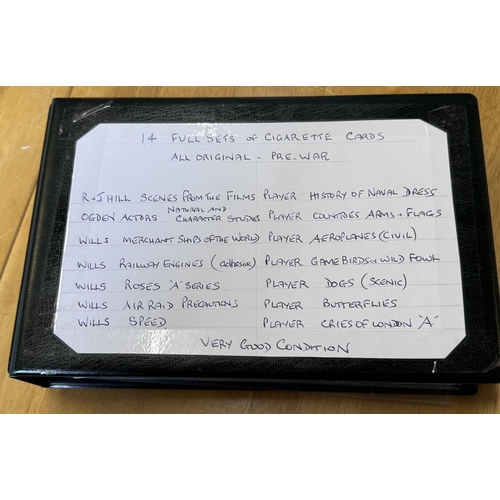 14 FULL SETS OF CIGARETTE CARDS
ALL ORIGINAL - PRE-WAR
R+J HILL SCENES FROM THE FILMS PLAYER HISTORY OF NAVAL DRESS
OGDEN ACTORS NATURAL AND CHARACTER STUDIES PLAYER COUNTRIES ARMS + FLAGS
WILLS MERCHANT SHIPS OF THE WORLD PLAYER AEROPLANES (CIVIL)
WILLS RAILWAY ENGINES (adhesive) PLAYER GAME BIRDS + WILD FOWL
WILLS ROSES 'A' SERIES PLAYER DOGS (SCENIC)
WILLS AIR RAID PRECAUTIONS PLAYER BUTTERFLIES
WILLS SPEED PLAYER CRIES OF LONDON 'A'
VERY GOOD CONDITION